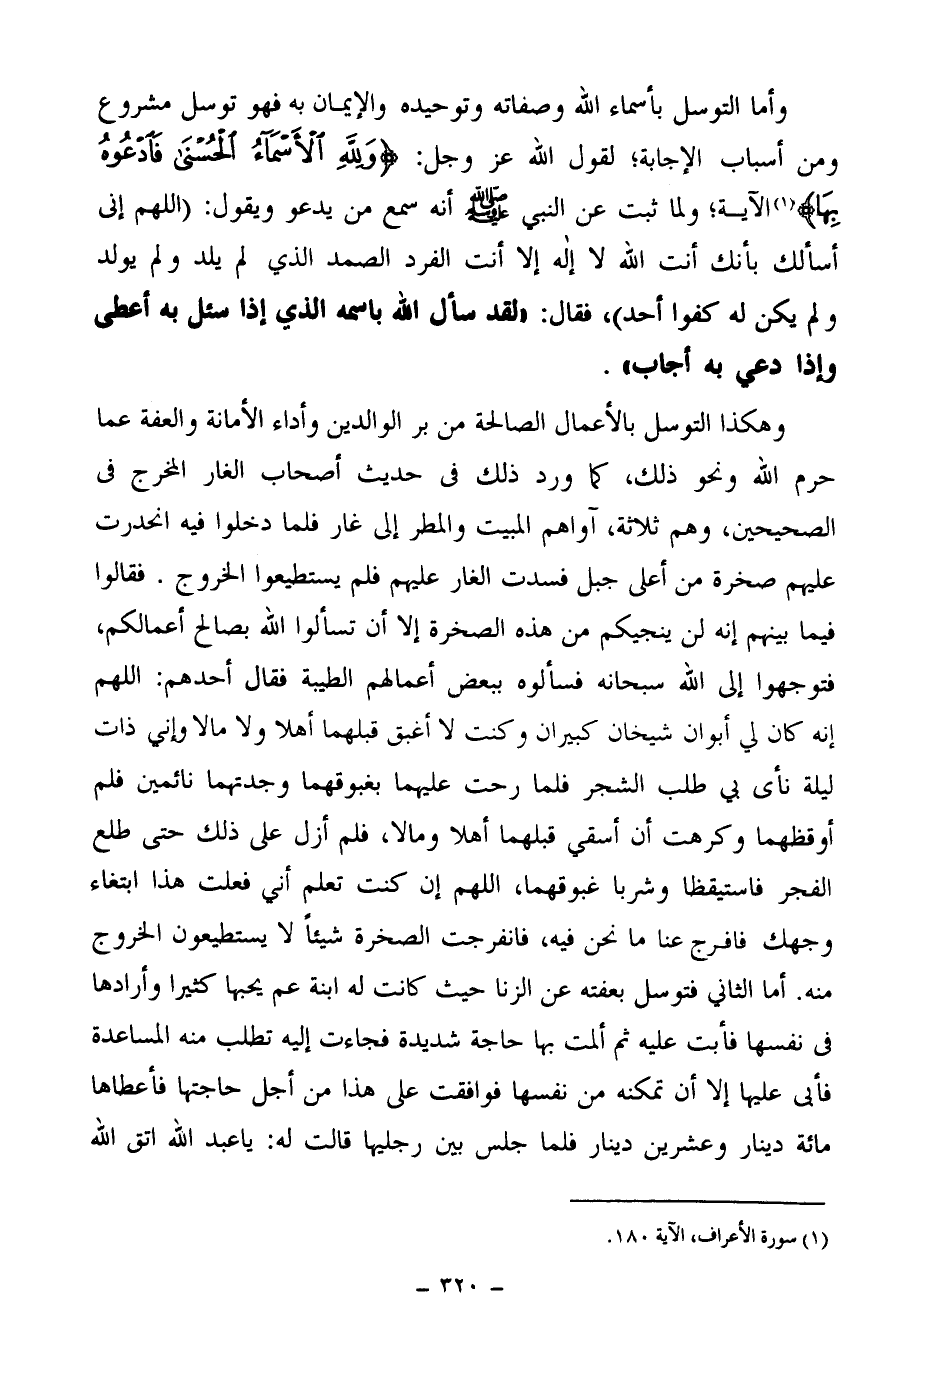 وأما التوسل بأسماء الله وصفاته وتوحيده والإيمان به فهو توسل مشروع
ومن أسباب الإجابة؛ لقول الله عز وجل: ﴿وَلِلَّهِ ٱلْأَسْمَآءُ ٱلْحُسْنَىٰ فَٱدْعُوهُ
بِهَا﴾(١) الآية؛ ولما ثبت عن النبي ﷺ أنه سمع من يدعو ويقول: (اللهم إنى
أسألك بأنك أنت الله لا إله إلا أنت الفرد الصمد الذي لم يلد ولم يولد
ولم يكن له كفوا أحد)، فقال: «لقد سأل الله باسمه الذي إذا سئل به أعطى
وإذا دعي به أجاب» .
وهكذا التوسل بالأعمال الصالحة من بر الوالدين وأداء الأمانة والعفة عما
حرم الله ونحو ذلك، كما ورد ذلك فى حديث أصحاب الغار المخرج فى
الصحيحين، وهم ثلاثة، آواهم المبيت والمطر إلى غار فلما دخلوا فيه انحدرت
عليهم صخرة من أعلى جبل فسدت الغار عليهم فلم يستطيعوا الخروج . فقالوا
فيما بينهم إنه لن ينجيكم من هذه الصخرة إلا أن تسألوا الله بصالح أعمالكم،
فتوجهوا إلى الله سبحانه فسألوه ببعض أعمالهم الطيبة فقال أحدهم: اللهم
إنه كان لي أبوان شيخان كبيران وكنت لا أغبق قبلهما أهلا ولا مالا وإني ذات
ليلة نأى بي طلب الشجر فلما رحت عليهما بغبوقهما وجدتهما نائمين فلم
أوقظهما وكرهت أن أسقي قبلهما أهلا ومالا، فلم أزل على ذلك حتى طلع
الفجر فاستيقظا وشربا غبوقهما، اللهم إن كنت تعلم أني فعلت هذا ابتغاء
وجهك فافرج عنا ما نحن فيه، فانفرجت الصخرة شيئاً لا يستطيعون الخروج
منه. أما الثاني فتوسل بعفته عن الزنا حيث كانت له ابنة عم يحبها كثيرا وأرادها
فى نفسها فأبت عليه ثم ألمت بها حاجة شديدة فجاءت إليه تطلب منه المساعدة
فأبى عليها إلا أن تمكنه من نفسها فوافقت على هذا من أجل حاجتها فأعطاها
مائة دينار وعشرين دينار فلما جلس بين رجليها قالت له: ياعبد الله اتق الله
(١) سورة الأعراف، الآية ١٨٠.
– ٣٢٠ –